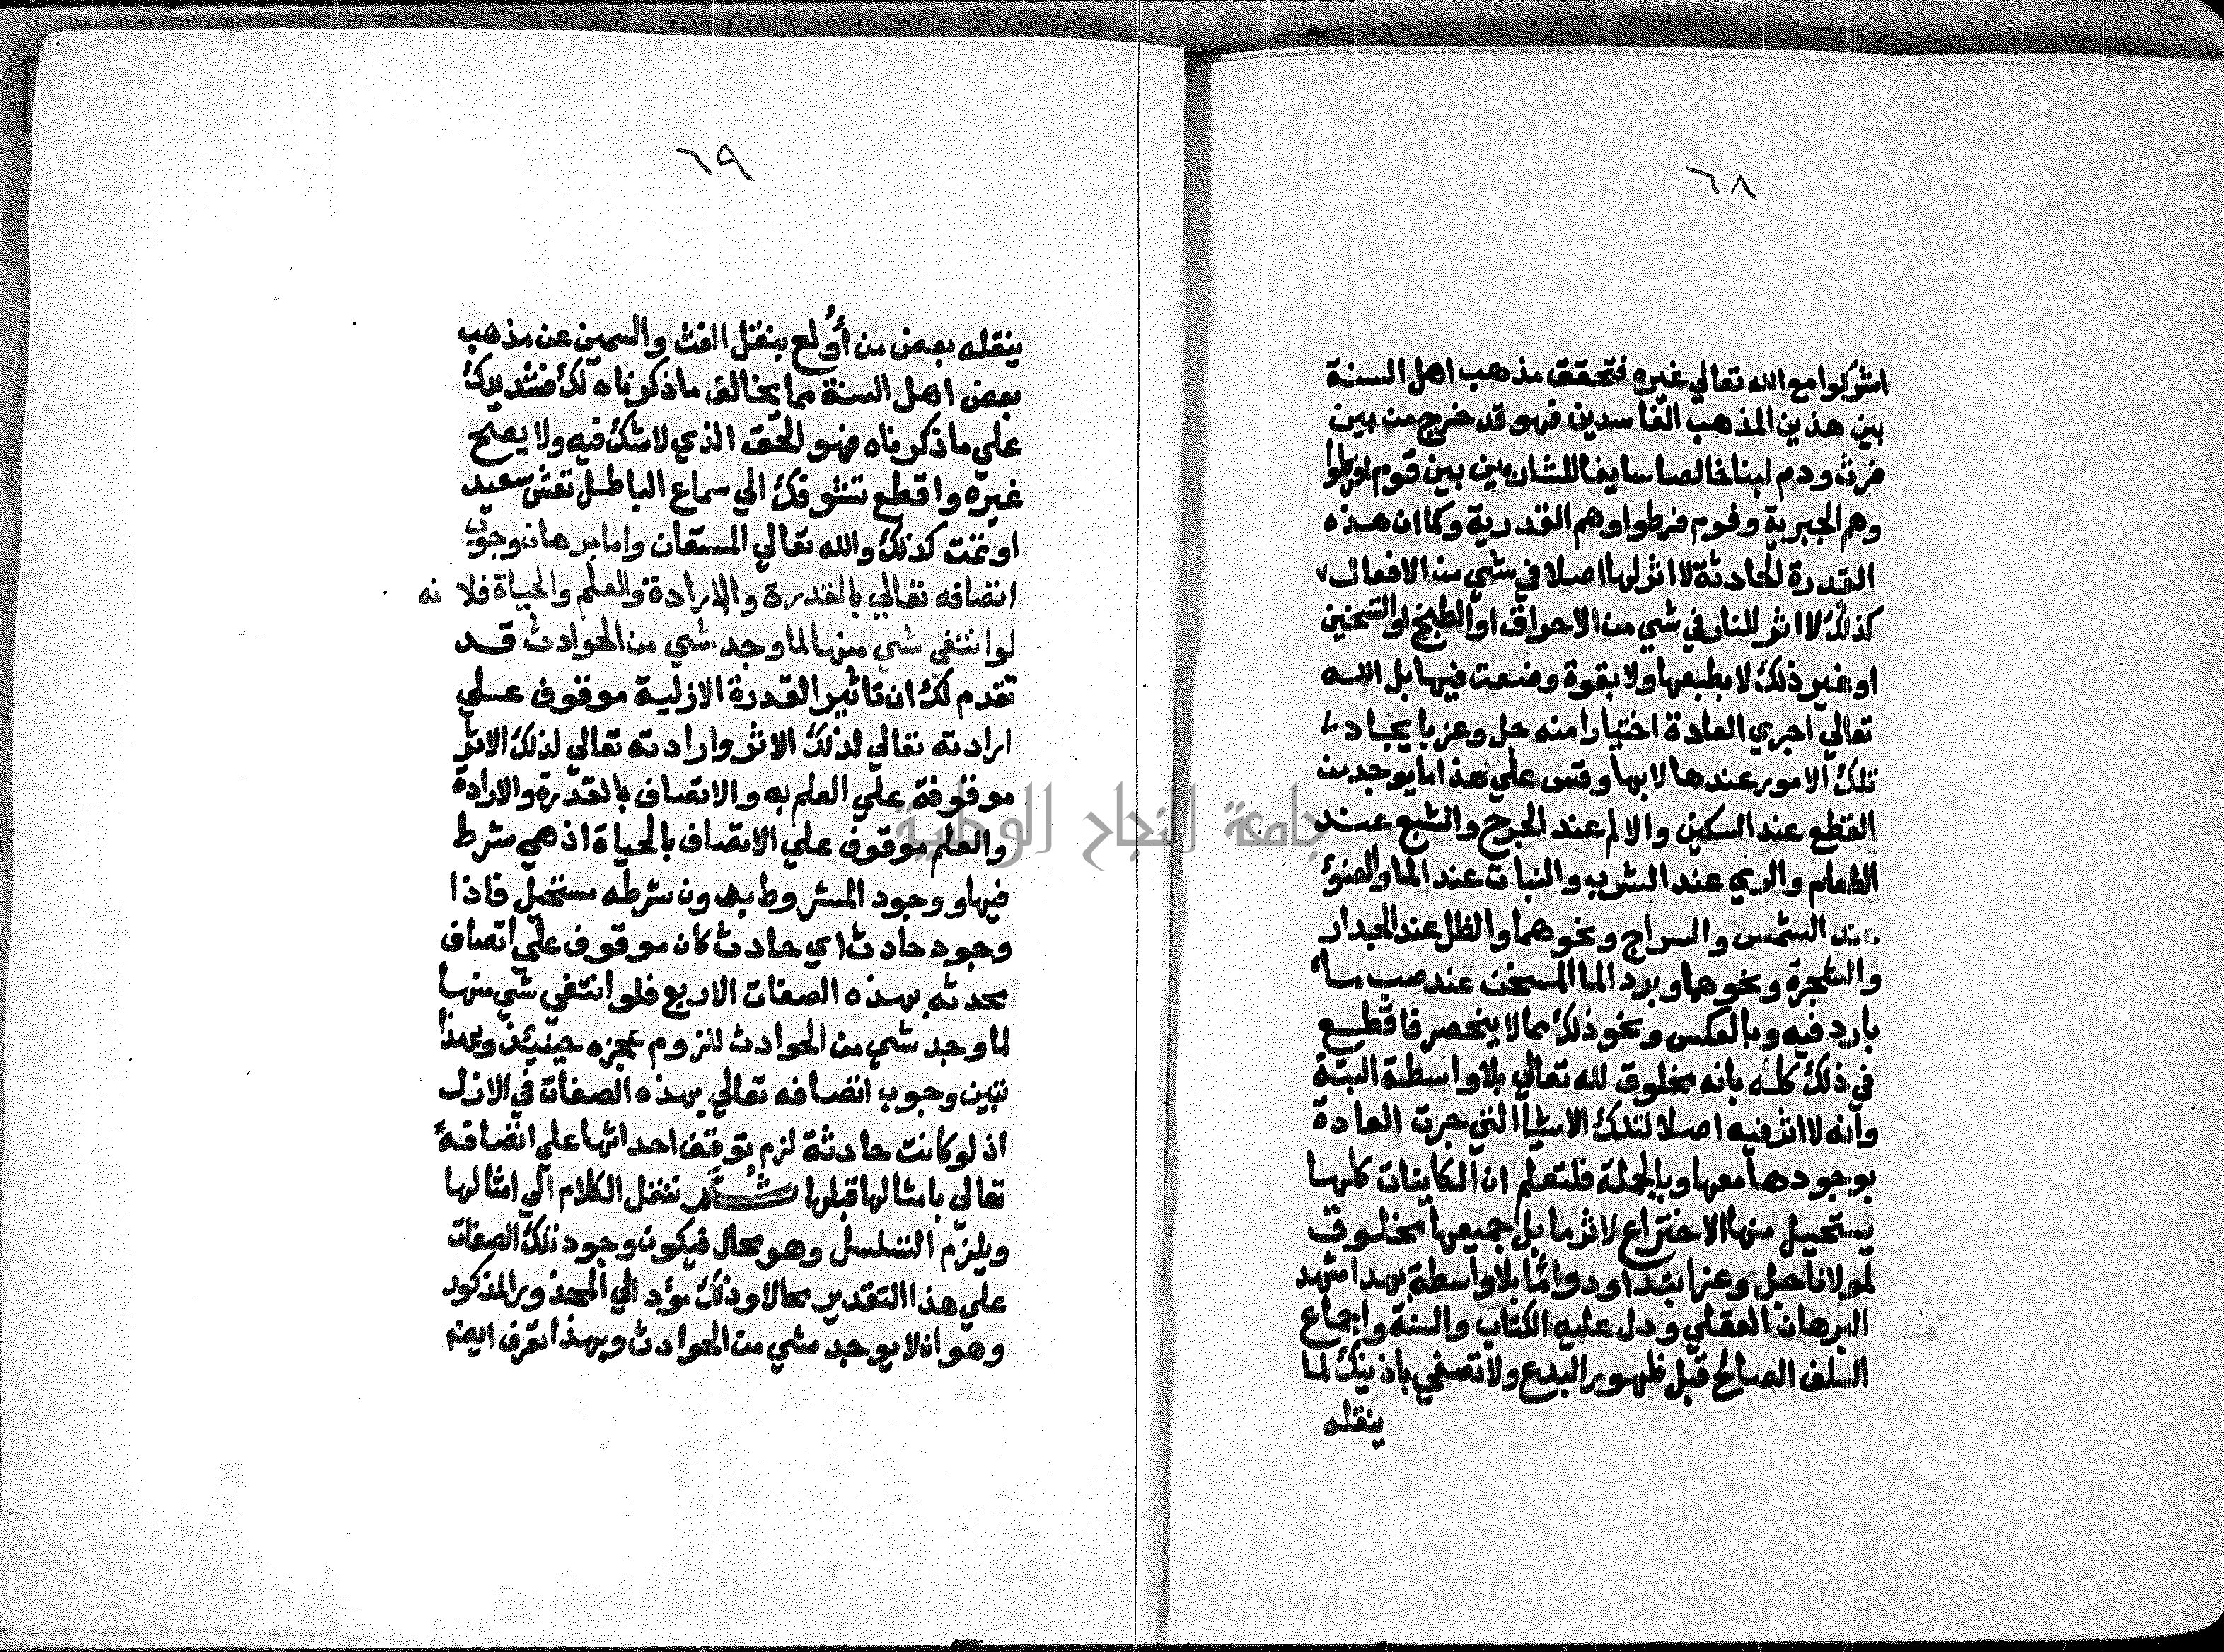 ٦٨
اشركوا مع الله تعالي غيره فتحقق مذهب اهل السنة
بين هذين المذهب الفاسدين فهو قد خرج من بين
فرث ودم لبنا خالصا سايغا للشاربين بين قوم افرطوا
وهم الجبرية وقوم فرطوا وهم القدرية وكما ان هذه
القدرة الحادثة لا اثر لها اصلا في شي من الافعال
كذلك لا اثر للنار في شي من الاحراق او الطبخ او التسخين
او غير ذلك لا بطبعها ولا بقوة وضعت فيها بل الله
تعالي اجري العادة اختيارا منه جل وعز بايجاد
تلك الامور عندها لا بها وقس علي هذا ما يوجد من
القطع عند السكين والالم عند الجرح والشبع عند
الطعام والري عند الشرب والنبات عند الما والضوء
عند الشمس والسراج ونحوهما والظل عند الجدار
والشجرة ونحوها وبرد الما المسخن عند صب ماء
بارد فيه وبالعكس ونحو ذلك مما لا ينحصر فاقطع
في ذلك كله بانه مخلوق لله تعالي بلا واسطة البتة
وانه لا اثر فيه اصلا لتلك الاشيا التي جرت العادة
بوجودها معها وبالجملة فلتعلم ان الكاينات كلها
يستحيل منها الاختراع لاثر ما بل جميعها مخلوق
لمولانا جل وعز ابتداء ودواما بلا واسطة بهذا شهد
البرهان العقلي ودل عليه الكتاب والسنة واجماع
السلف الصالح قبل ظهور البدع ولا تصغي باذنيك لما
ينقله
٦٩
ينقله بعض من أُولع بنقل الغث والسمين عن مذهب
بعض اهل السنة مما يخالف ما ذكرناه لك فشد يدك
علي ما ذكرناه فهو الحق الذي لا شك فيه ولا يصح
غيره واقطع تشوفك الي سماع الباطل تعش سعيد
او تمت كذلك والله تعالي المستعان واما برهان وجوب
اتصافه تعالي بالقدرة والارادة والعلم والحياة فلا نه
لو انتفي شي منها لما وجد شي من الحوادث قد
تقدم لك ان تاثير القدرة الازلية موقوف علي
ارادته تعالي لذلك الاثر وارادته تعالي لذلك الاثر
موقوفة علي العلم به والاتصاف بالقدرة والارادة
والعلم موقوف علي الاتصاف بالحياة اذ هي شرط
فيها ووجود المشروط بدون شرطه مستحيل فاذا
وجود حادث اي حادث كان موقوف علي اتصاف
محدثه بهذه الصفات الاربع فلو انتفي شي منها
لما وجد شي من الحوادث للزوم عجزه حينيذ وبهذا
تبين وجوب اتصافه تعالي بهذه الصفات في الازل
اذ لو كانت حادثة لزم توقف احداثها علي اتصافه
تعالي بامثالها قبلها ثم تنقل الكلام الي امثالها
ويلزم التسلسل وهو محال فيكون وجود تلك الصفات
علي هذا التقدير محالا وذلك مؤد الي المحذور المذكور
وهو ان لا يوجد شي من الحوادث وبهذا تعرف ايضم
جامعة النجاح الوطنية